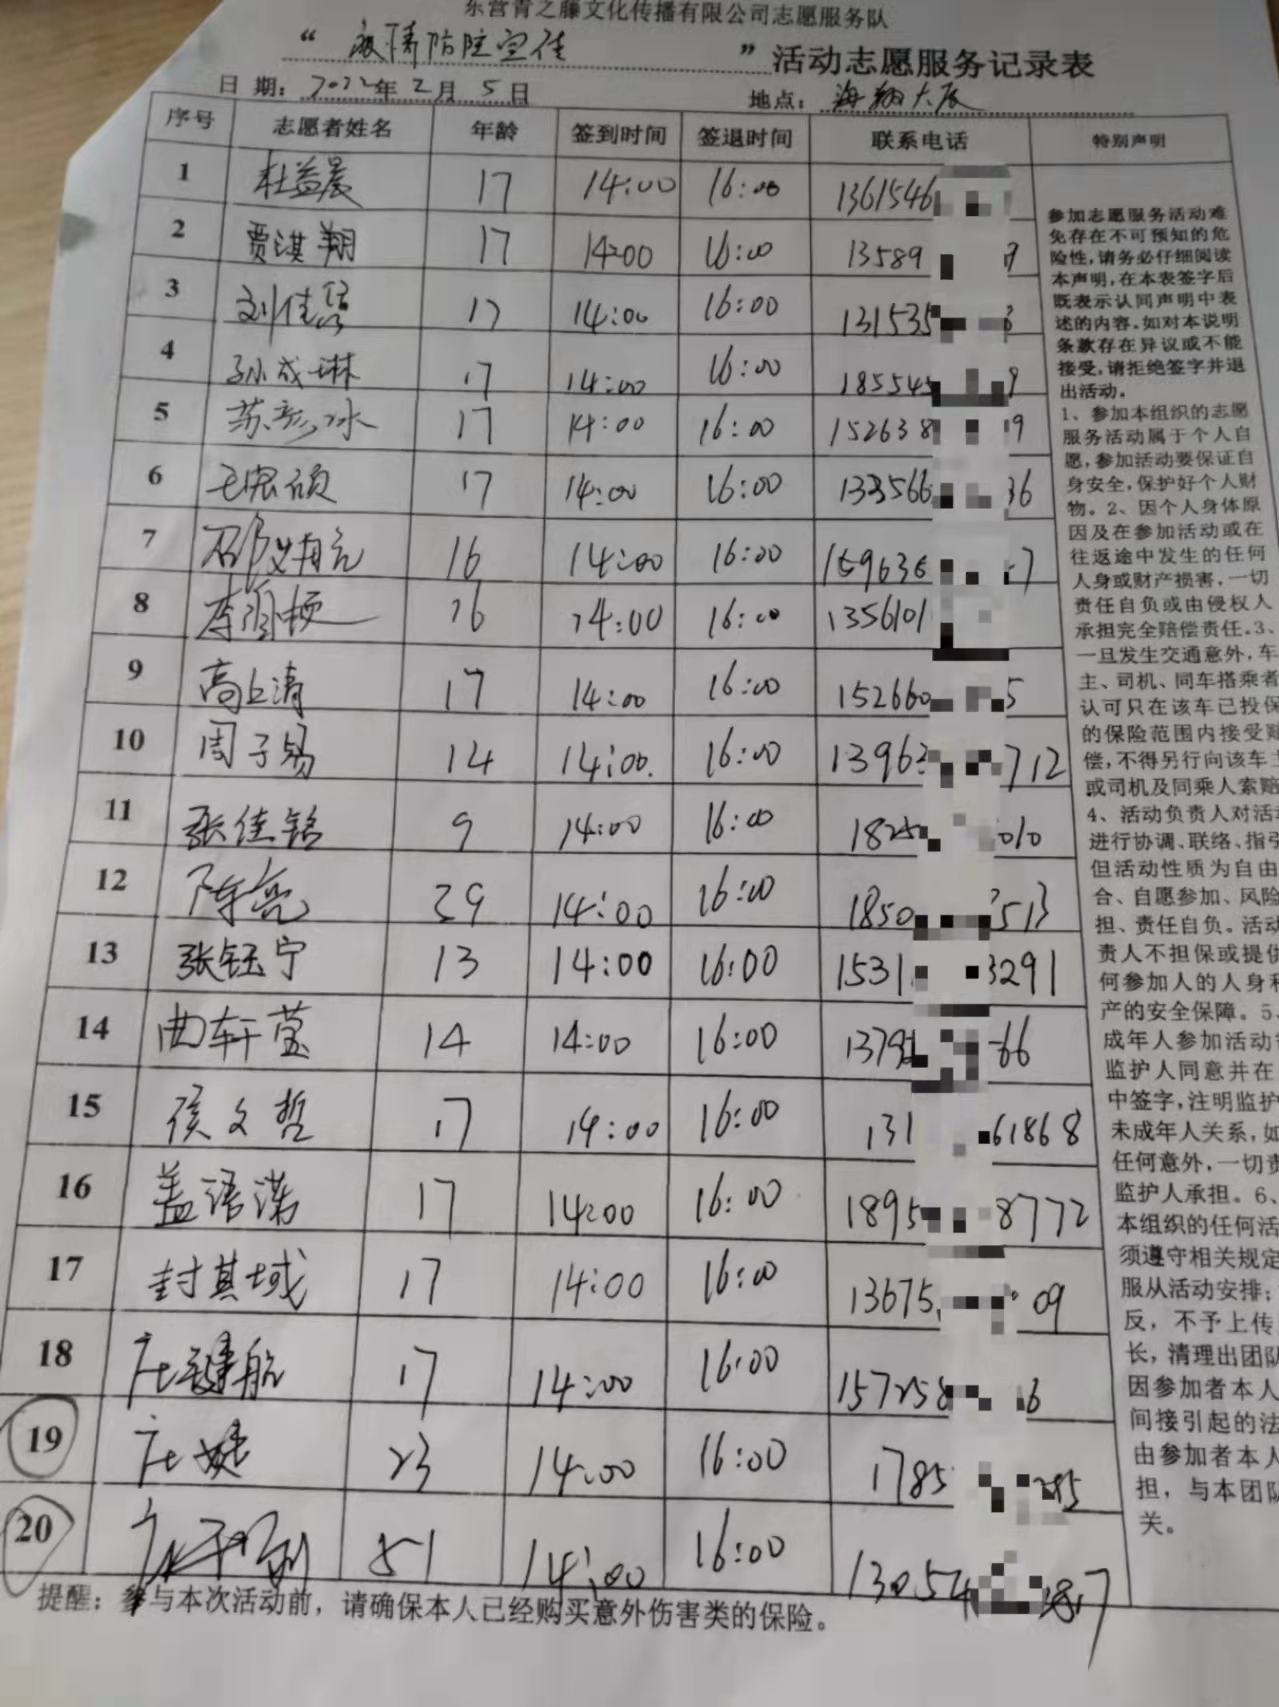 东营青之藤文化传播有限公司志愿服务队
“ 疫情防控宣传 ” 活动志愿服务记录表
日 期: 2022年 2 月 5 日 地点: 海翔大厦
序号 志愿者姓名 年龄 签到时间 签退时间 联系电话 特别声明
1 杜益晨 17 14:00 16:00 1361546
2 贾淇翔 17 14:00 16:00 13589 9
3 刘佳 17 14:00 16:00 131535 3
4 孙成琳 17 14:00 16:00 185545 9
5 苏彦冰 17 14:00 16:00 152638 9
6 王宏硕 17 14:00 16:00 133566 36
7 邵 16 14:00 16:00 159636 7
8 李 16 14:00 16:00 1356101
9 高上清 17 14:00 16:00 152660 5
10 周子易 14 14:00. 16:00 13963 712
11 张佳铭 9 14:00 16:00 1825 010
12 陈亮 39 14:00 16:00 1850 3513
13 张钰宁 13 14:00 16:00 1531 3291
14 曲轩萱 14 14:00 16:00 1379 66
15 侯文哲 17 14:00 16:00 131 61868
16 盖语诺 17 14:00 16:00 1895 8772
17 封其域 17 14:00 16:00 13675 09
18 庄键航 17 14:00 16:00 157258 6
19 庄婕 23 14:00 16:00 1785 285
20 庄 51 14:00 16:00 13054 387
参加志愿服务活动难
免存在不可预知的危
险性,请务必仔细阅读
本声明,在本表签字后
既表示认同声明中表
述的内容.如对本说明
条款存在异议或不能
接受,请拒绝签字并退
出活动。
1、参加本组织的志愿
服务活动属于个人自
愿,参加活动要保证自
身安全,保护好个人财
物。2、因个人身体原
因及在参加活动或在
往返途中发生的任何
人身或财产损害,一切
责任自负或由侵权人
承担完全赔偿责任.3、
一旦发生交通意外,车
主、司机、同车搭乘者
认可只在该车已投保
的保险范围内接受赔
偿,不得另行向该车主
或司机及同乘人索赔
4、活动负责人对活动
进行协调、联络、指引
但活动性质为自由
合、自愿参加、风险
担、责任自负。活动
责人不担保或提供
何参加人的人身和
产的安全保障。5、
成年人参加活动
监护人同意并在
中签字,注明监护
未成年人关系,如
任何意外,一切责
监护人承担。6、
本组织的任何活
须遵守相关规定
服从活动安排;
反,不予上传
长,清理出团队
因参加者本人
间接引起的法
由参加者本人
担,与本团队
关。
提醒: 参与本次活动前, 请确保本人已经购买意外伤害类的保险。